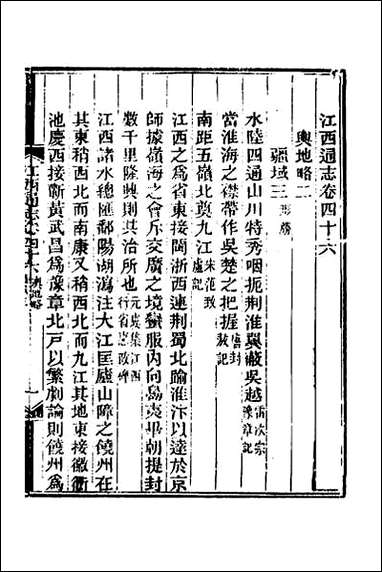 江西通志卷四十六
輿地略二
疆域三 形勝
水陸四通山川特秀咽扼荆淮翼蔽吳越 雷次宗豫章記
當淮海之襟帶作吳楚之把握 記
南距五嶺北奠九江 朱范致虛記
江西之爲省東接閩浙西連荆蜀北隃淮汴以達於京
師據嶺海之會斥交廣之境蠻服內向島夷畢朝提封
數千里隆興則其治所也 元虞集江西行省惠政碑
江西諸水總匯鄱陽湖瀉注大江匡廬山障之饒州在
其東稍西北而南康又稍西北而九江其地東接徽衢
池慶西接蘄黃武昌爲豫章北戸以繁劇論則饒州爲
江西通志卷四十六 輿地略